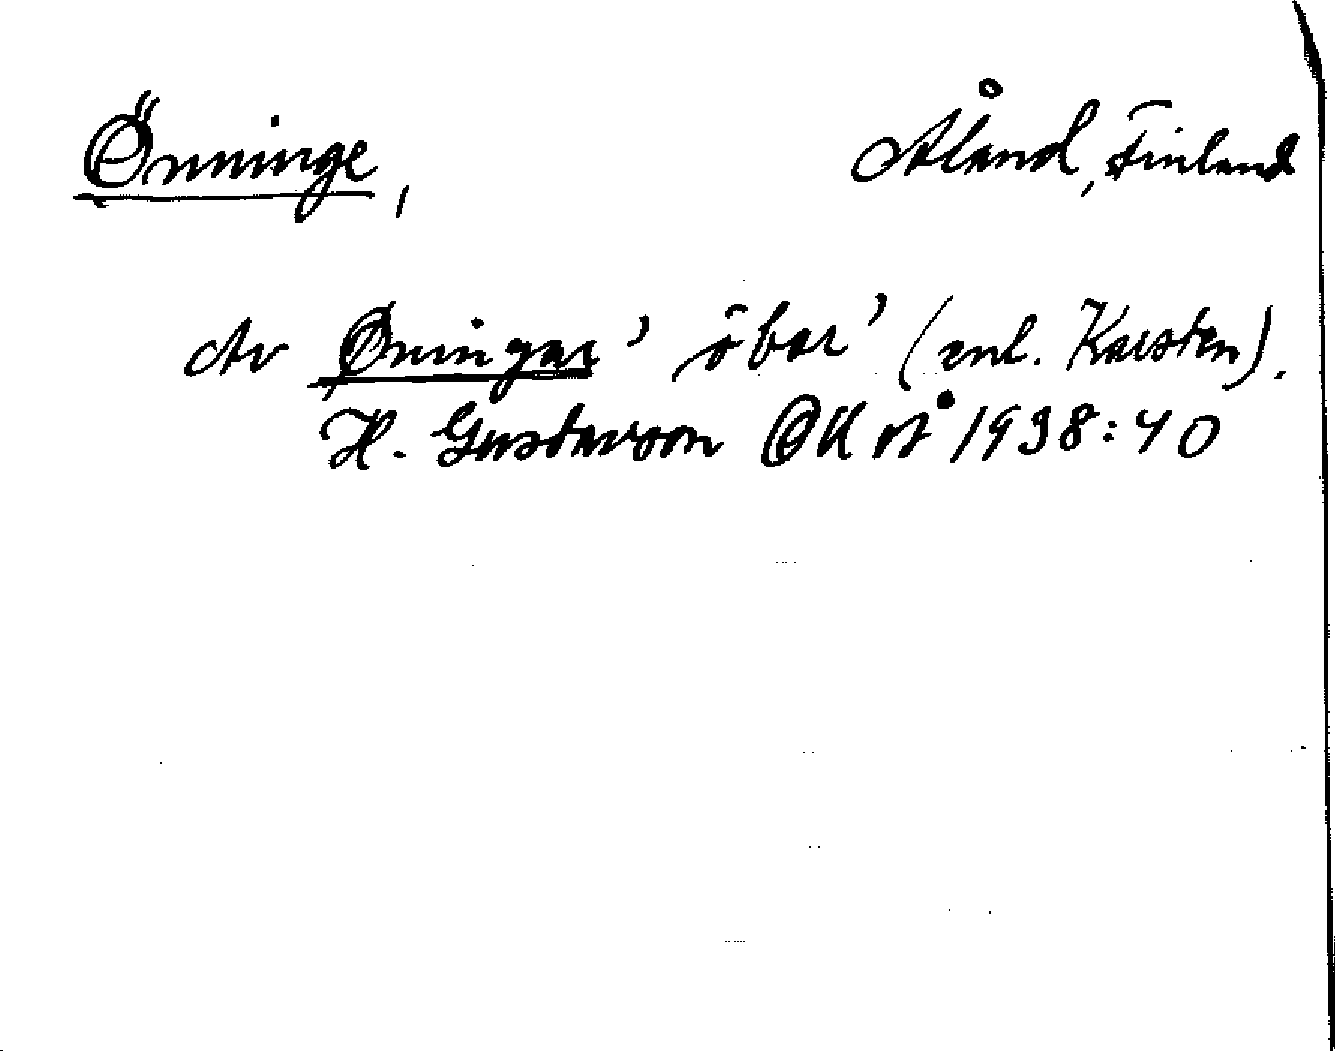 Önninge, Åland, Finland
Av Öningar 'öbor' (enl. Karsten).
H. Gustavson OUÅ 1938:40